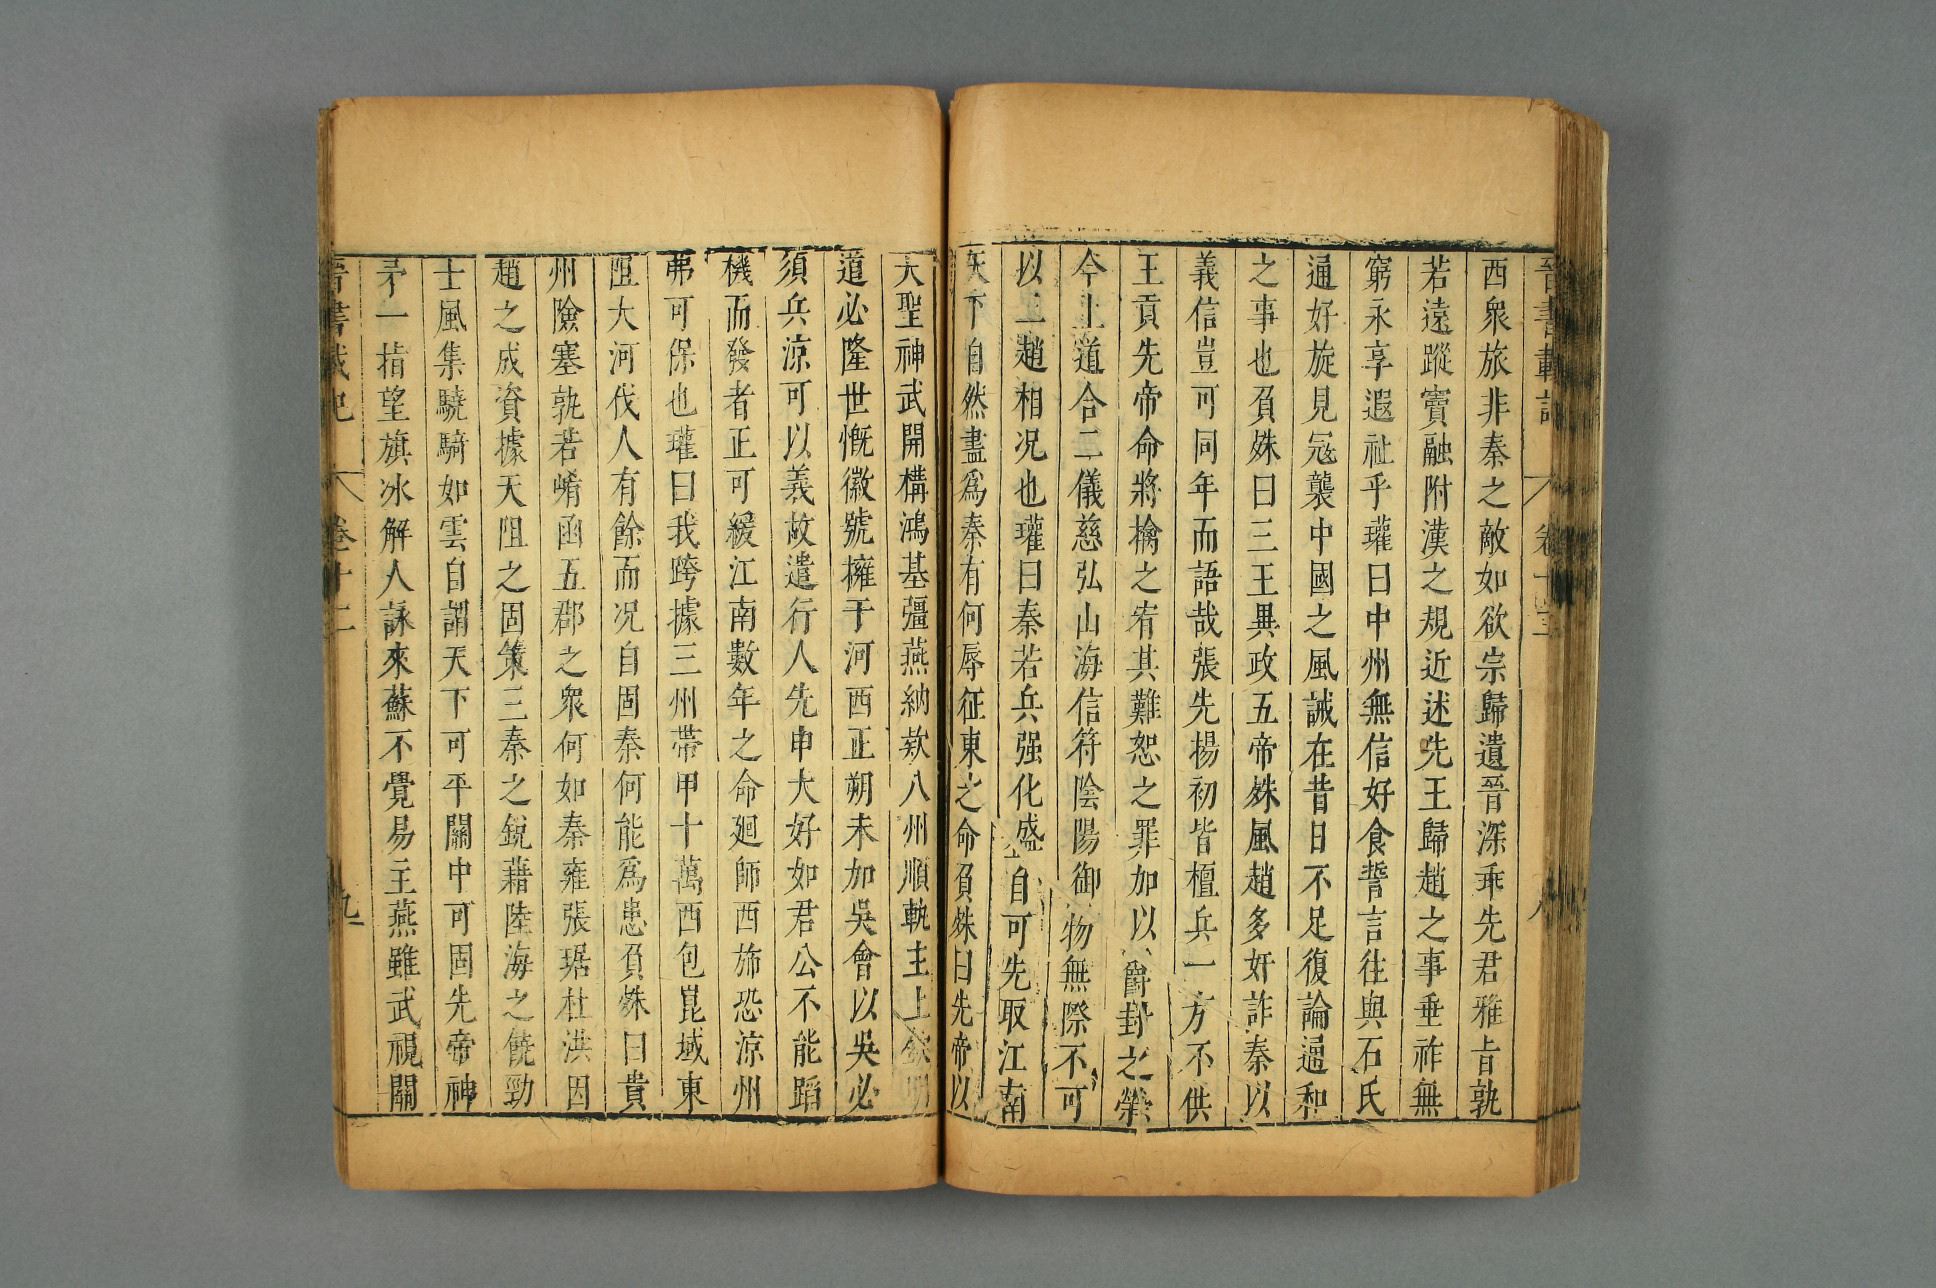 晉書載記 卷十二 八
西衆旅非秦之敵如欲宗歸遺晉深乖先君雅旨孰
若遠蹤竇融附漢之規近述先王歸趙之事垂祚無
窮永享遐祉乎瓘曰中州無信好食誓言往與石氏
通好旋見寇襲中國之風誡在昔日不足復論通和
之事也負姝曰三王異政五帝殊風趙多奸詐秦以
義信豈可同年而語哉張先揚初皆擅兵一方不供
王貢先帝命將擒之宥其難恕之罪加以爵封之榮
今上道合二儀慈弘山海信符陰陽御物無際不可
以二趙相况也瓘曰秦若兵强化盛自可先取江南
天下自然盡爲秦有何辱征東之命負姝曰先帝以
大聖神武開構鴻基彊燕納款八州順軌主上欽明
道必隆世慨徽號擁于河西正朔未加吳會以吳必
須兵涼可以義故遣行人先申大好如君公不能蹈
機而發者正可緩江南數年之命廻師西斾恐涼州
弗可保也瓘曰我跨據三州帶甲十萬西包崑域東
阻大河伐人有餘而况自固秦何能爲患負姝曰貴
州險塞孰若崤函五郡之衆何如秦雍張琚杜洪因
趙之成資據天阻之固策三秦之銳藉陸海之饒勁
士風集驍騎如雲自謂天下可平關中可固先帝神
矛一指望旗冰解人詠來蘇不覺易主燕雖武視關
晉書載記 卷十二 九